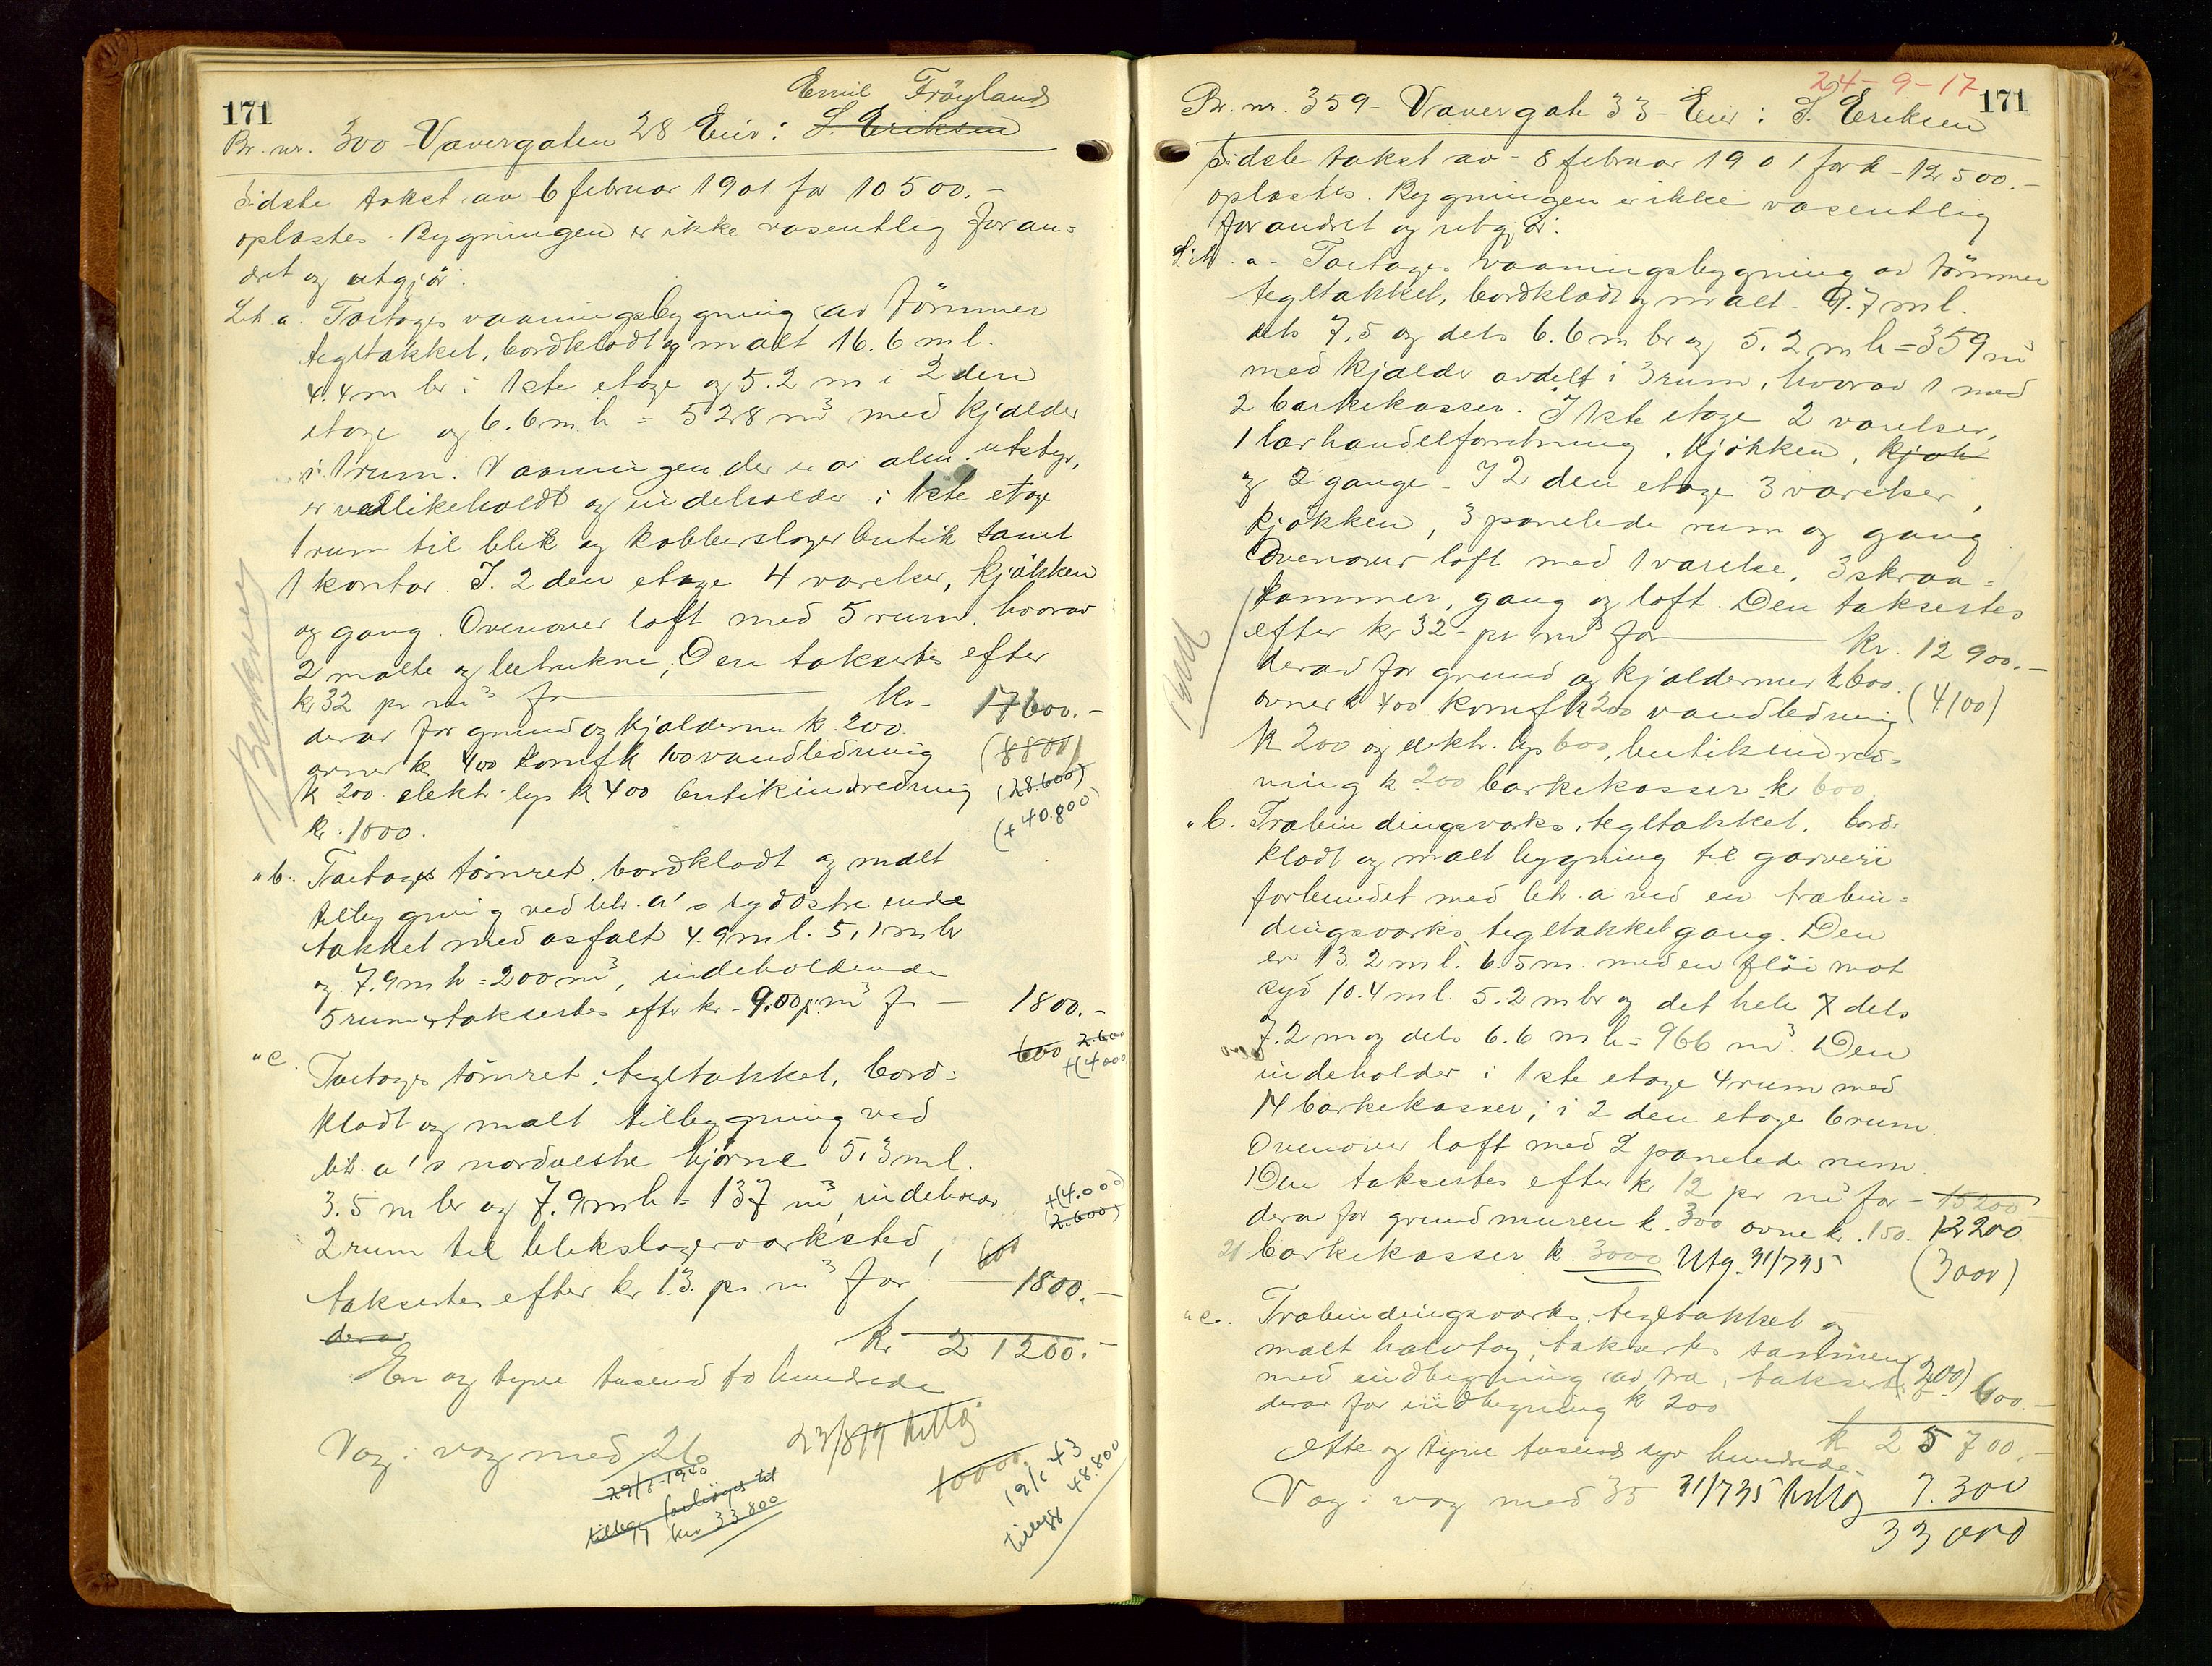 171
Emil Fröyland
Br. nr. 300 - Vavergaten 28 Eier: S. Eriksen
Sidste takst av 6 februar 1901 for 10500.-
oplæstes. Bygningen er ikke væsentlig foran=
dret og utgjör:
Lit. a. Toetages vaaningsbygning av tömmer
tegltækket, bordklædt og malt 16.6 m l.
4.4 m br i 1ste etage og 5.2 m i 2den
etage og 6.6 m h = 528 m³ med kjælder
i 1 rum. Vaaningen der er av alm. utstyr,
er vedlikeholdt og indeholder i 1ste etage
1 rum til blik og kobberslagerbutik samt
1 kontor. I. 2den etage 4 værelser, kjökken
og gang. Ovenover loft med 5 rum, hvorav
2 malte og betrukne, Den taksertes efter
kr 32 pr m³ for kr. 17600.-
derav for grund og kjældermur k. 200.
ovner k 400 komf k 100 vandledning (8800)
k 200 elektr. lys k 400 butikindredning (28.600)
kr. 1000. (+40.800)
Beskrevet
"b. Toetages tömret, bordklædt og malt
tilbygning ved lit. a's sydöstre ende
tækket med asfalt 4.9 m l. 5,1 m br
og 7.9 m h = 200 m³, indeholdende
5 rum taksertes eftr kr. 9.00 pr. m³ for – 1800.-
600 2.600
+(4000
"c. Toetages tömret, tegltækket, bord=
klædt og malt tilbygning ved
lit. a's nordvestre hjörne 5.3 m l.
3.5 m br og 7.9 m h = 137 m³, indeholder +(4.000)
2 rum til blikslagerværksted, (2.600)
600
taksertes efter kr 13. pr m³ for 1800.-
derav kr 21200.-
En og tyve tusend to hundrede
Væg i væg med 26
29/1-1940
tillegg forhöyes til
kr 33800
10000.
19/1 43
tillegg 48.800
24-9-17
171
Br. nr. 359 - Vavergate 33 - Eier: S. Eriksen
Sidste takst av - 8 februar 1901 for k - 12500.-
oplæstes. Bygningen er ikke væsentlig
forandret og utgjör:
Lit. a - Toetages vaaningsbygning av tömmer
tegltækket, bordklædt og malt - 9.7 m l.
dels 7,5 og dels 6.6 m br og 5.2 m h = 359 m³
med kjælder avdelt i 3 rum, hvorav 1 med
2 barkekasser. I 1ste etage 2 værelser,
1 lærhandelforretning, kjökken, kjök
og 2 gange - I 2den etage 3 værelser,
kjökken, 3 panelede rum og gang
Ovenover loft med 1 værelse, 3 skraa=
kammer, gang og loft. Den taksertes
efter kr 32- pr m³ for kr. 12900.-
derav for grund og kjældermur k 600. (4100)
ovner k 400 komf k 200 vandledning
k 200 og elektr. lys 600, butikindred=
ning k 200 barkekasser k 600
"b. Træbindingsværks, tegltækket, bord=
klædt og malt bygning til garveri
forbundet med lit. a ved en træbin=
dingsværks, tegltækket gang. Den
er 13.2 m l. 6.5 m. med en flöi mot
syd 10.4 m l. 5.2 m br og det hele 7 dels
7.2 m og dels 6.6 m h = 966 m³. Den
indeholder i 1ste etage 4 rum med
14 barkekasser; i 2den etage 6 rum.
Ovenover loft med 2 panelede rum.
Den taksertes efter kr 12 pr m³ for - 15200
derav for grundmuren k. 300 ovne k. 150. 12200
21 barkekasser k. 3000 Utg. 31/7 35 (3000)
"c. Træbindingsværks, tegltækket og
malt halvtag, taksertes sammen
med indbygning av træ, taksert (200) 600.-
derav for indbygning kr 200
k 25700.-
ofte og tyve tusend syv hundrede
Væg i væg med 35 31/7 35 7.300
33000